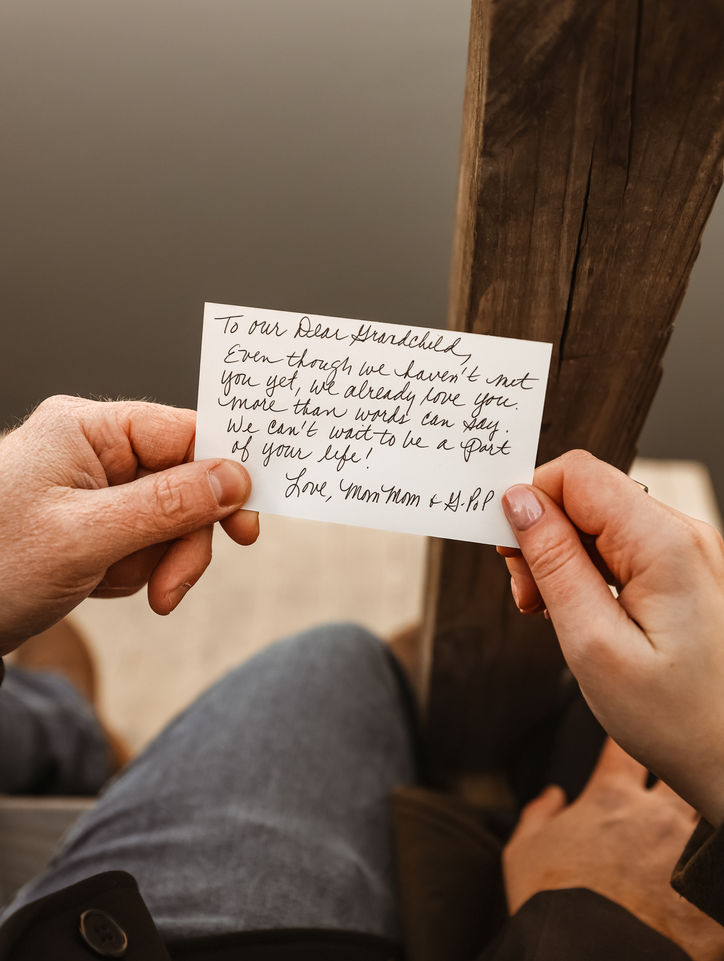 To our Dear Grandchild,
Even though we haven't met
you yet, we already love you.
more than words can say.
We can't wait to be a part
of your life!
Love, MomMom & G-Pop